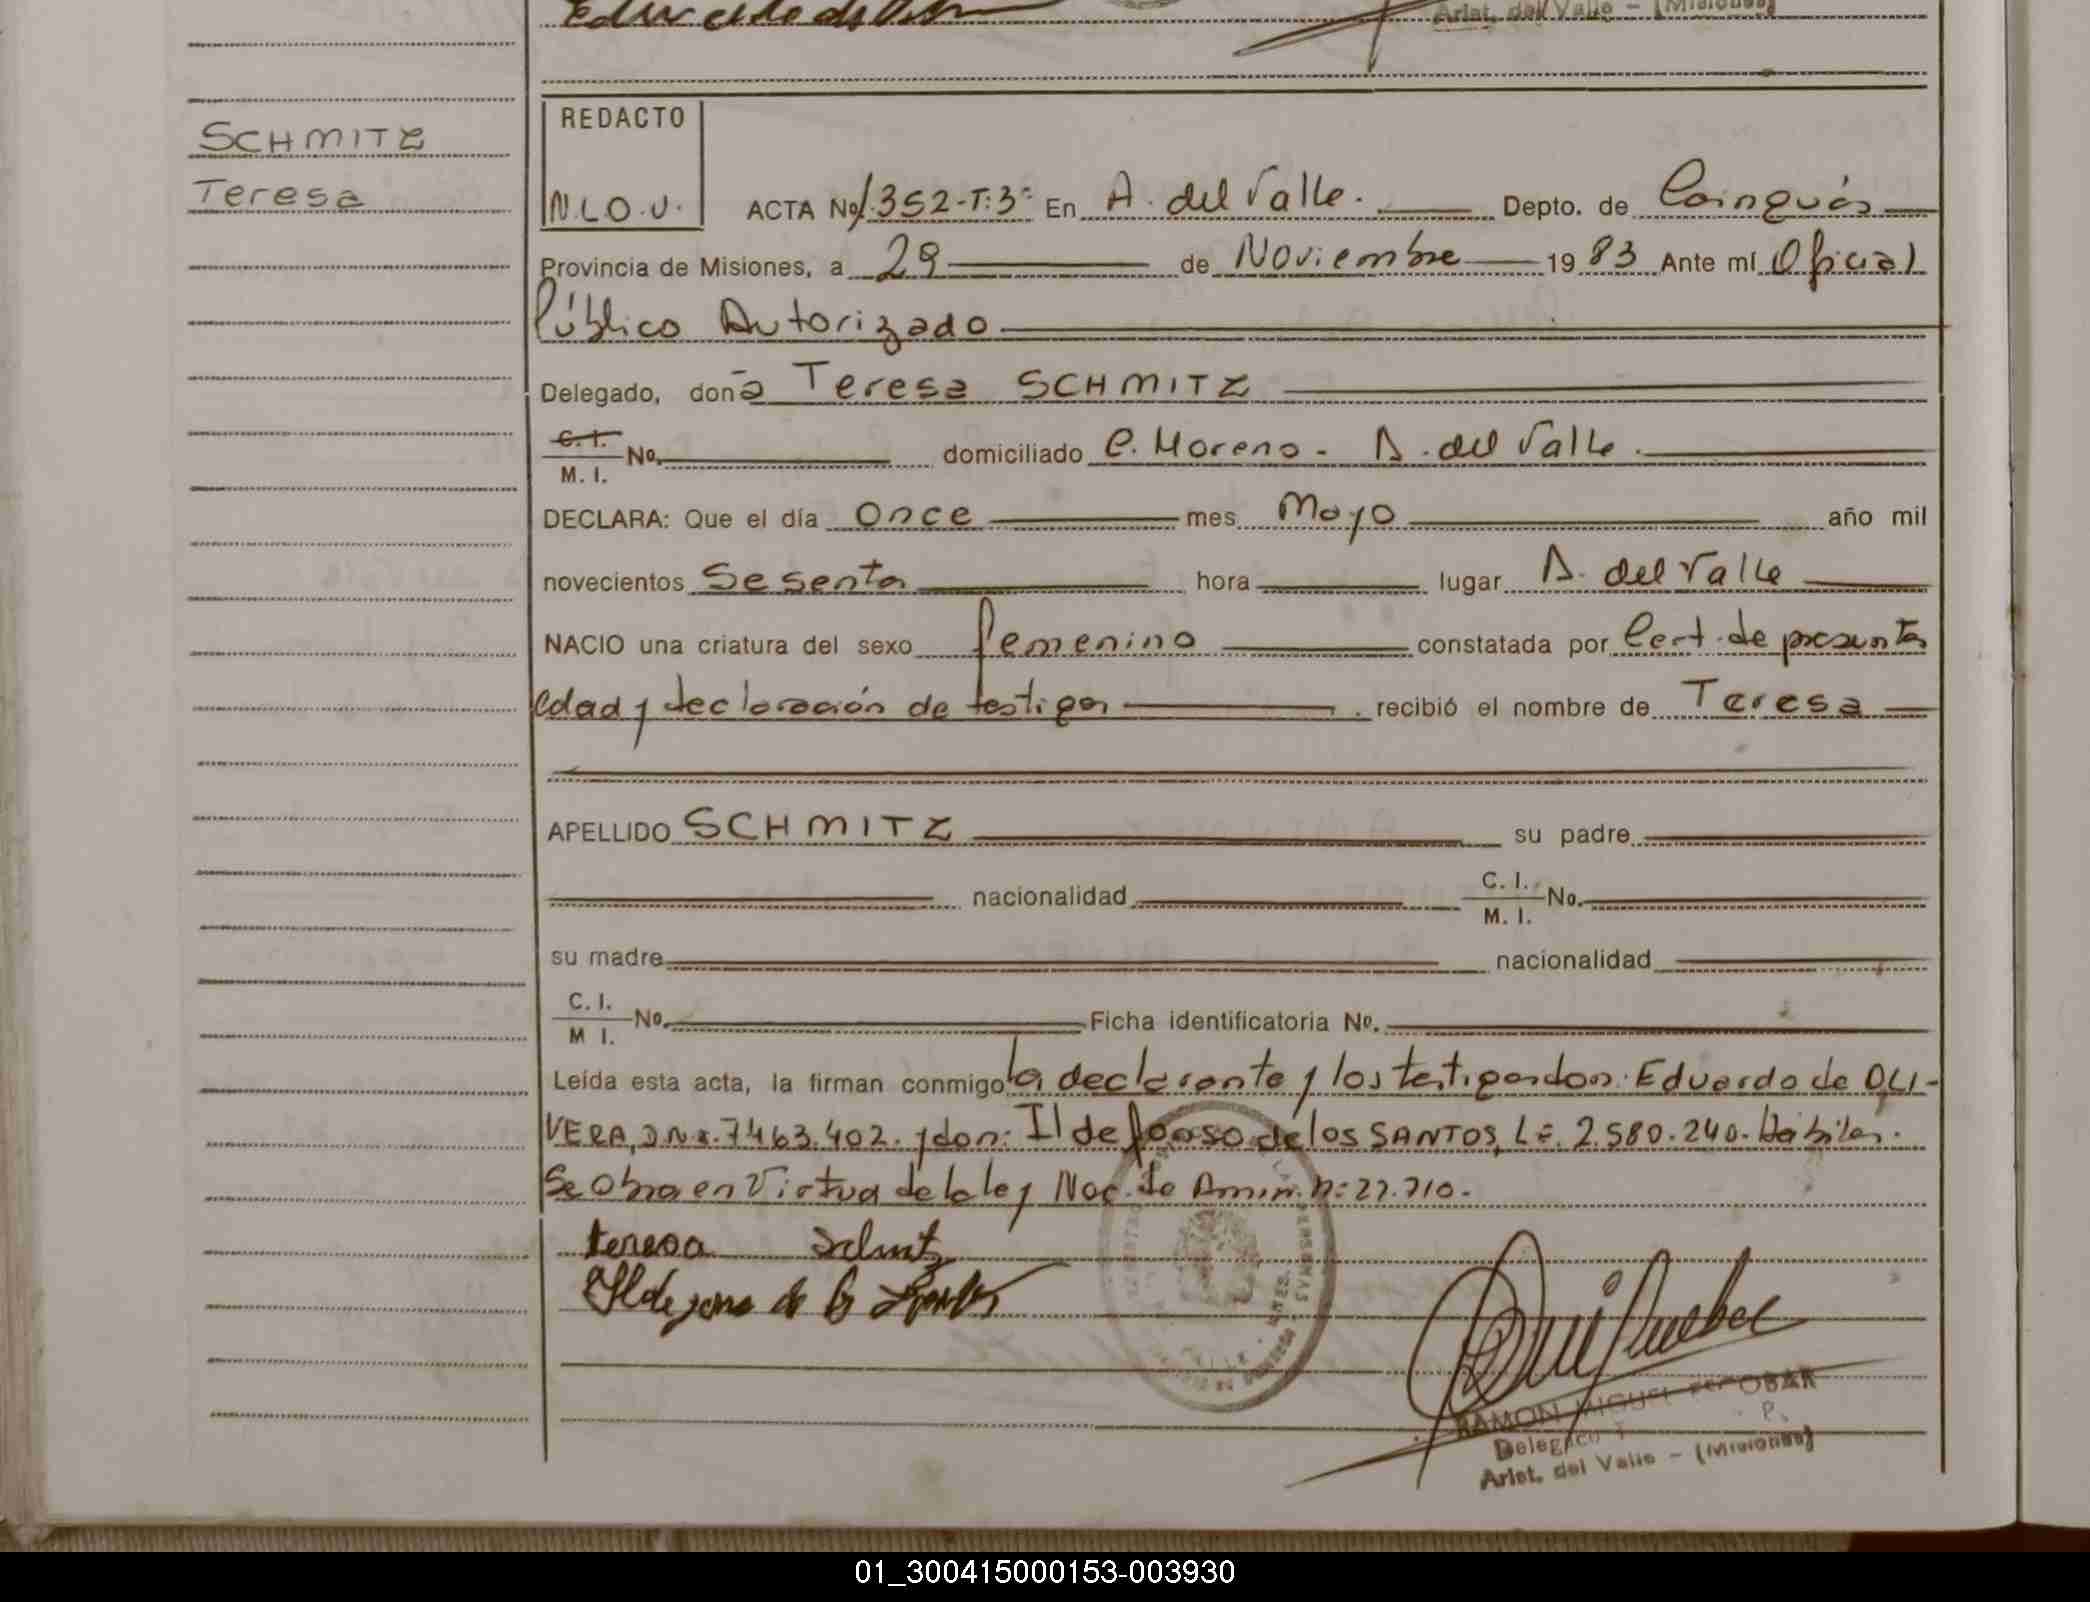 Arist. del Valle - (Misiones)
SCHMITZ
Teresa
REDACTO
N.L.O.U.
ACTA Nº 1.352-T:3º En A. del Valle. Depto. de Cainguás
Provincia de Misiones, a 29 de Noviembre 19 83 Ante mí Oficial
Público Autorizado
Delegado, doña Teresa SCHMITZ
C. I.
M. I. No. domiciliado C. Moreno - A. del Valle.
DECLARA: Que el día Once mes Mayo año mil
novecientos Sesenta hora lugar A. del Valle
NACIO una criatura del sexo femenino constatada por Cert. de presunta
edad y declaración de testigos recibió el nombre de Teresa
APELLIDO SCHMITZ su padre
nacionalidad C. I. No.
M. I.
su madre nacionalidad
C. I. No. Ficha identificatoria Nº.
M I.
Leída esta acta, la firman conmigo la declarante y los testigos don: Eduardo de OLI-
VERA, DNI. 7463.402. y don: Ildefonso de los SANTOS, LE. 2.580.240. Hábiles.
Se Obra en Virtud de la ley Nac. de Amn. Nº 22.710.
teresa Schmitz
Ildefonso de los Santos
RAMON MIGUEL ESCOBAR
Delegado
Arist. del Valle - (Misiones)
01_300415000153-003930